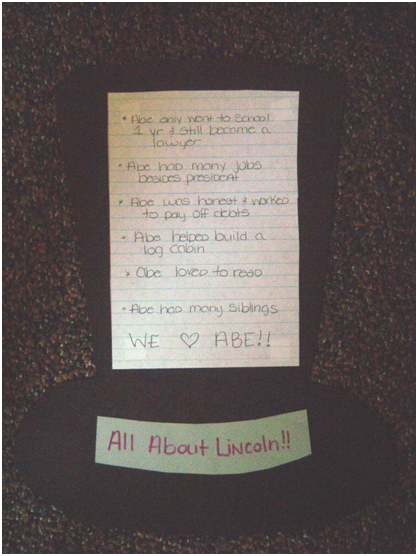 * Abe only went to school
1 yr & still became a
lawyer
* Abe had many jobs
besides president
* Abe was honest & worked
to pay off debts
* Abe helped build a
log cabin
* Abe loved to read
* Abe had many siblings
WE ♡ ABE!!
All About Lincoln!!